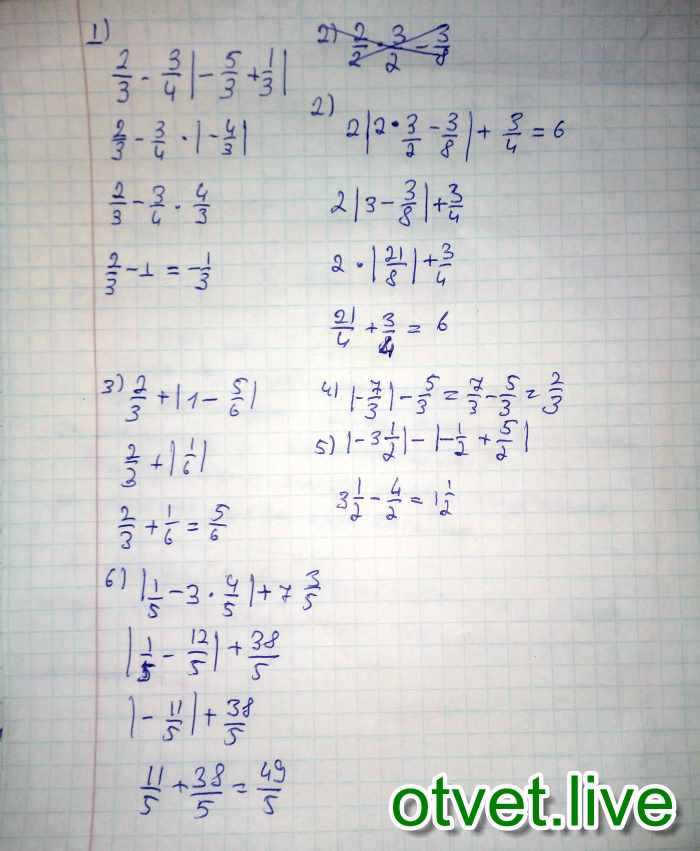 1)
2/3 - 3/4 |-5/3 + 1/3|
2/3 - 3/4 · |-4/3|
2/3 - 3/4 · 4/3
2/3 - 1 = -1/3
2) 2/2 · 3/2 - 3/8
2)
2|2·3/2 - 3/8| + 3/4 = 6
2|3 - 3/8| + 3/4
2 · |21/8| + 3/4
21/4 + 3/4 = 6
3) 2/3 + |1 - 5/6|
2/3 + |1/6|
2/3 + 1/6 = 5/6
4) |-7/3| - 5/3 = 7/3 - 5/3 = 2/3
5) |-3 1/2| - |-1/2 + 5/2|
3 1/2 - 4/2 = 1 1/2
6) |1/5 - 3 · 4/5| + 7 3/5
|1/5 - 12/5| + 38/5
|-11/5| + 38/5
11/5 + 38/5 = 49/5
otvet.live